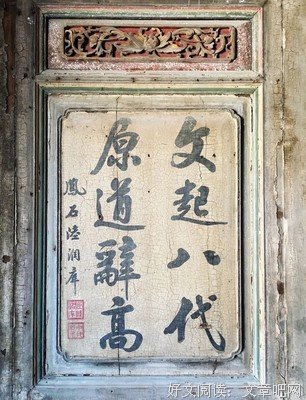 文起八代
原道辭高
鳳石陸潤庠
好文阅读:文章吧网